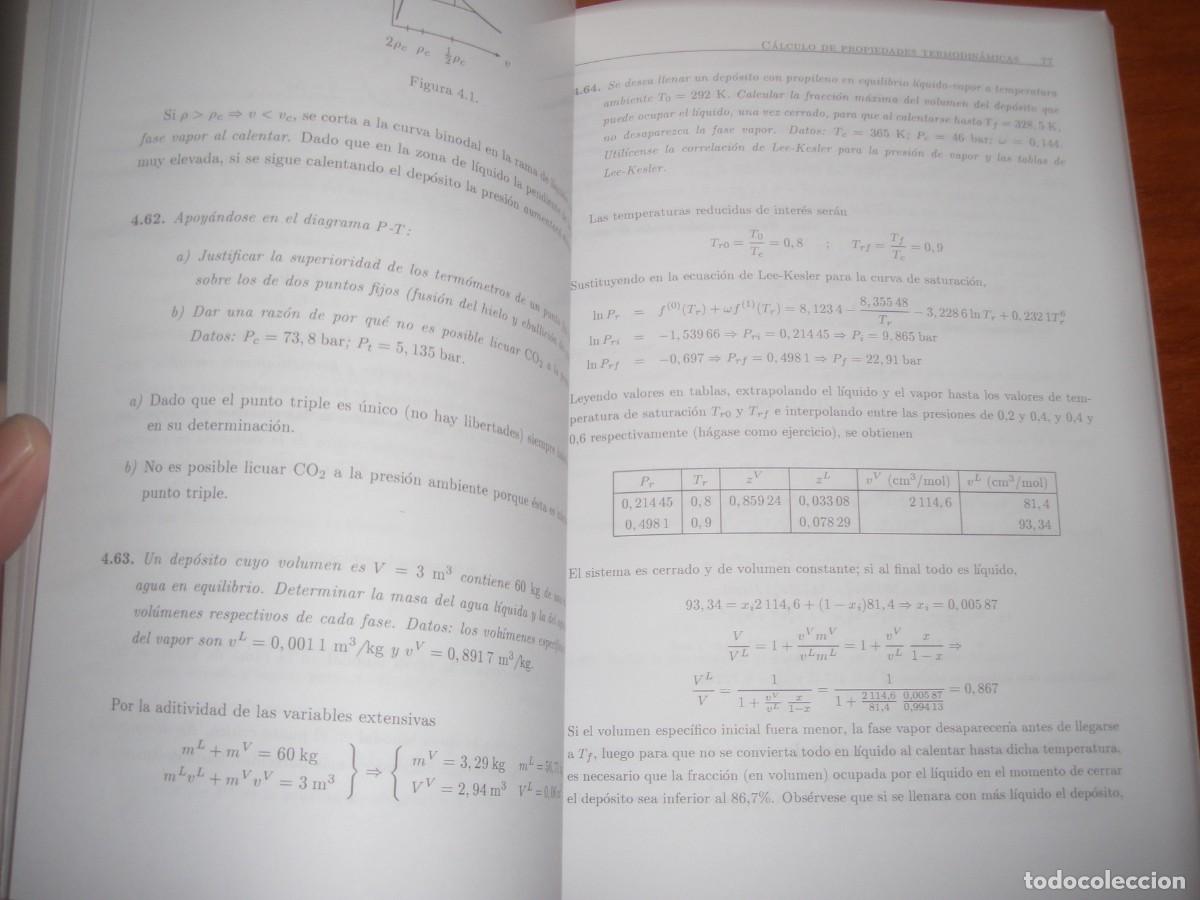 2ρc ρc 1/2 ρc v
Figura 4.1.
Si ρ > ρc ⇒ v < vc, se corta a la curva binodal en la rama de
fase vapor al calentar. Dado que en la zona de líquido la pendiente
muy elevada, si se sigue calentando el depósito la presión aumentará
4.62. Apoyándose en el diagrama P-T:
a) Justificar la superioridad de los termómetros de un punto
sobre los de dos puntos fijos (fusión del hielo y ebullición
b) Dar una razón de por qué no es posible licuar CO2 a la
Datos: Pc = 73,8 bar; Pt = 5,135 bar.
a) Dado que el punto triple es único (no hay libertades) siempre
en su determinación.
b) No es posible licuar CO2 a la presión ambiente porque ésta es
punto triple.
4.63. Un depósito cuyo volumen es V = 3 m³ contiene 60 kg de
agua en equilibrio. Determinar la masa del agua líquida y la del
volúmenes respectivos de cada fase. Datos: los volúmenes
del vapor son v^L = 0,0011 m³/kg y v^V = 0,8917 m³/kg.
Por la aditividad de las variables extensivas
m^L + m^V = 60 kg
m^L v^L + m^V v^V = 3 m³ } ⇒ { m^V = 3,29 kg
V^V = 2,94 m³
CÁLCULO DE PROPIEDADES TERMODINÁMICAS 77
4.64. Se desea llenar un depósito con propileno en equilibrio líquido-vapor a temperatura
ambiente T0 = 292 K. Calcular la fracción máxima del volumen del depósito que
puede ocupar el líquido, una vez cerrado, para que al calentarse hasta Tf = 328,5 K,
no desaparezca la fase vapor. Datos: Tc = 365 K; Pc = 46 bar; ω = 0,144.
Utilícense la correlación de Lee-Kesler para la presión de vapor y las tablas de
Lee-Kesler.
Las temperaturas reducidas de interés serán
Tr0 = T0/Tc = 0,8 ; Trf = Tf/Tc = 0,9
Sustituyendo en la ecuación de Lee-Kesler para la curva de saturación,
ln Pr = f^(0)(Tr) + ωf^(1)(Tr) = 8,1234 − 8,35548/Tr − 3,2286 ln Tr + 0,2321Tr^6
ln Pri = −1,53966 ⇒ Pri = 0,21445 ⇒ Pi = 9,865 bar
ln Prf = −0,697 ⇒ Prf = 0,4981 ⇒ Pf = 22,91 bar
Leyendo valores en tablas, extrapolando el líquido y el vapor hasta los valores de tem-
peratura de saturación Tr0 y Trf e interpolando entre las presiones de 0,2 y 0,4, y 0,4 y
0,6 respectivamente (hágase como ejercicio), se obtienen
Pr Tr z^V z^L v^V (cm³/mol) v^L (cm³/mol)
0,21445 0,8 0,85924 0,03308 2114,6 81,4
0,4981 0,9 0,07829 93,34
El sistema es cerrado y de volumen constante; si al final todo es líquido,
93,34 = xi2114,6 + (1 − xi)81,4 ⇒ xi = 0,00587
V/V^L = 1 + v^V m^V/v^L m^L = 1 + v^V/v^L x/1−x ⇒
V^L/V = 1/(1 + v^V/v^L x/1−x) = 1/(1 + 2114,6/81,4 0,00587/0,99413) = 0,867
Si el volumen específico inicial fuera menor, la fase vapor desaparecería antes de llegarse
a Tf, luego para que no se convierta todo en líquido al calentar hasta dicha temperatura,
es necesario que la fracción (en volumen) ocupada por el líquido en el momento de cerrar
el depósito sea inferior al 86,7%. Obsérvese que si se llenara con más líquido el depósito,
todocoleccion